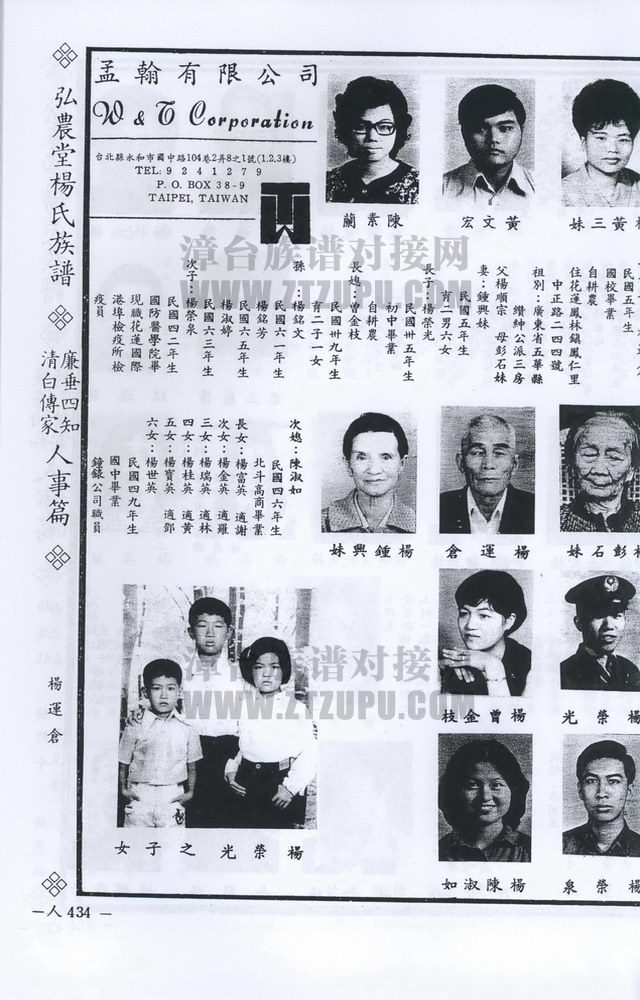 弘農堂楊氏族譜
廉垂四知
清白傳家
人事篇
楊運倉
—人 434 —
孟翰有限公司
W & T Corporation
台北縣永和市國中路104巷2弄8之1號(1.2.3樓)
TEL: 9241279
P. O. BOX 38-9
TAIPEI, TAIWAN
蘭素陳
宏文黃
妹三黃
民國五年
國校畢業
自耕農
住花蓮鳳林鎮鳳仁里
中正路二四四號
祖別：廣東省五華縣
纘紳公派三房
父楊順宗　母彭石妹
妻：鍾興妹
民國五年生
育二男六女
長子：楊榮光
民國卅五年生
初中畢業
自耕農
長媳：曾金枝
民國卅九年生
育二子一女
孫：楊銘文
民國六一年生
楊銘芳
民國六五年生
楊淑婷
民國六三年生
次子：楊榮泉
民國四二年生
國防醫學院畢
現職花蓮國際
港埠檢疫所檢
疫員
次媳：陳淑如
民國四六年生
北斗高商畢業
長女：楊富英　適謝
次女：楊金英　適羅
三女：楊瑞英　適林
四女：楊桂英　適黃
五女：楊寶英　適鄧
六女：楊世英
民國四九年生
國中畢業
鐘錶公司職員
妹興鍾楊
倉運楊
妹石彭楊
枝金曾楊
光榮楊
女子之光榮楊
如淑陳楊
泉榮楊
漳台族谱对接网
WWW.ZTZUPU.COM
漳台族谱对接网
WWW.ZTZUPU.COM